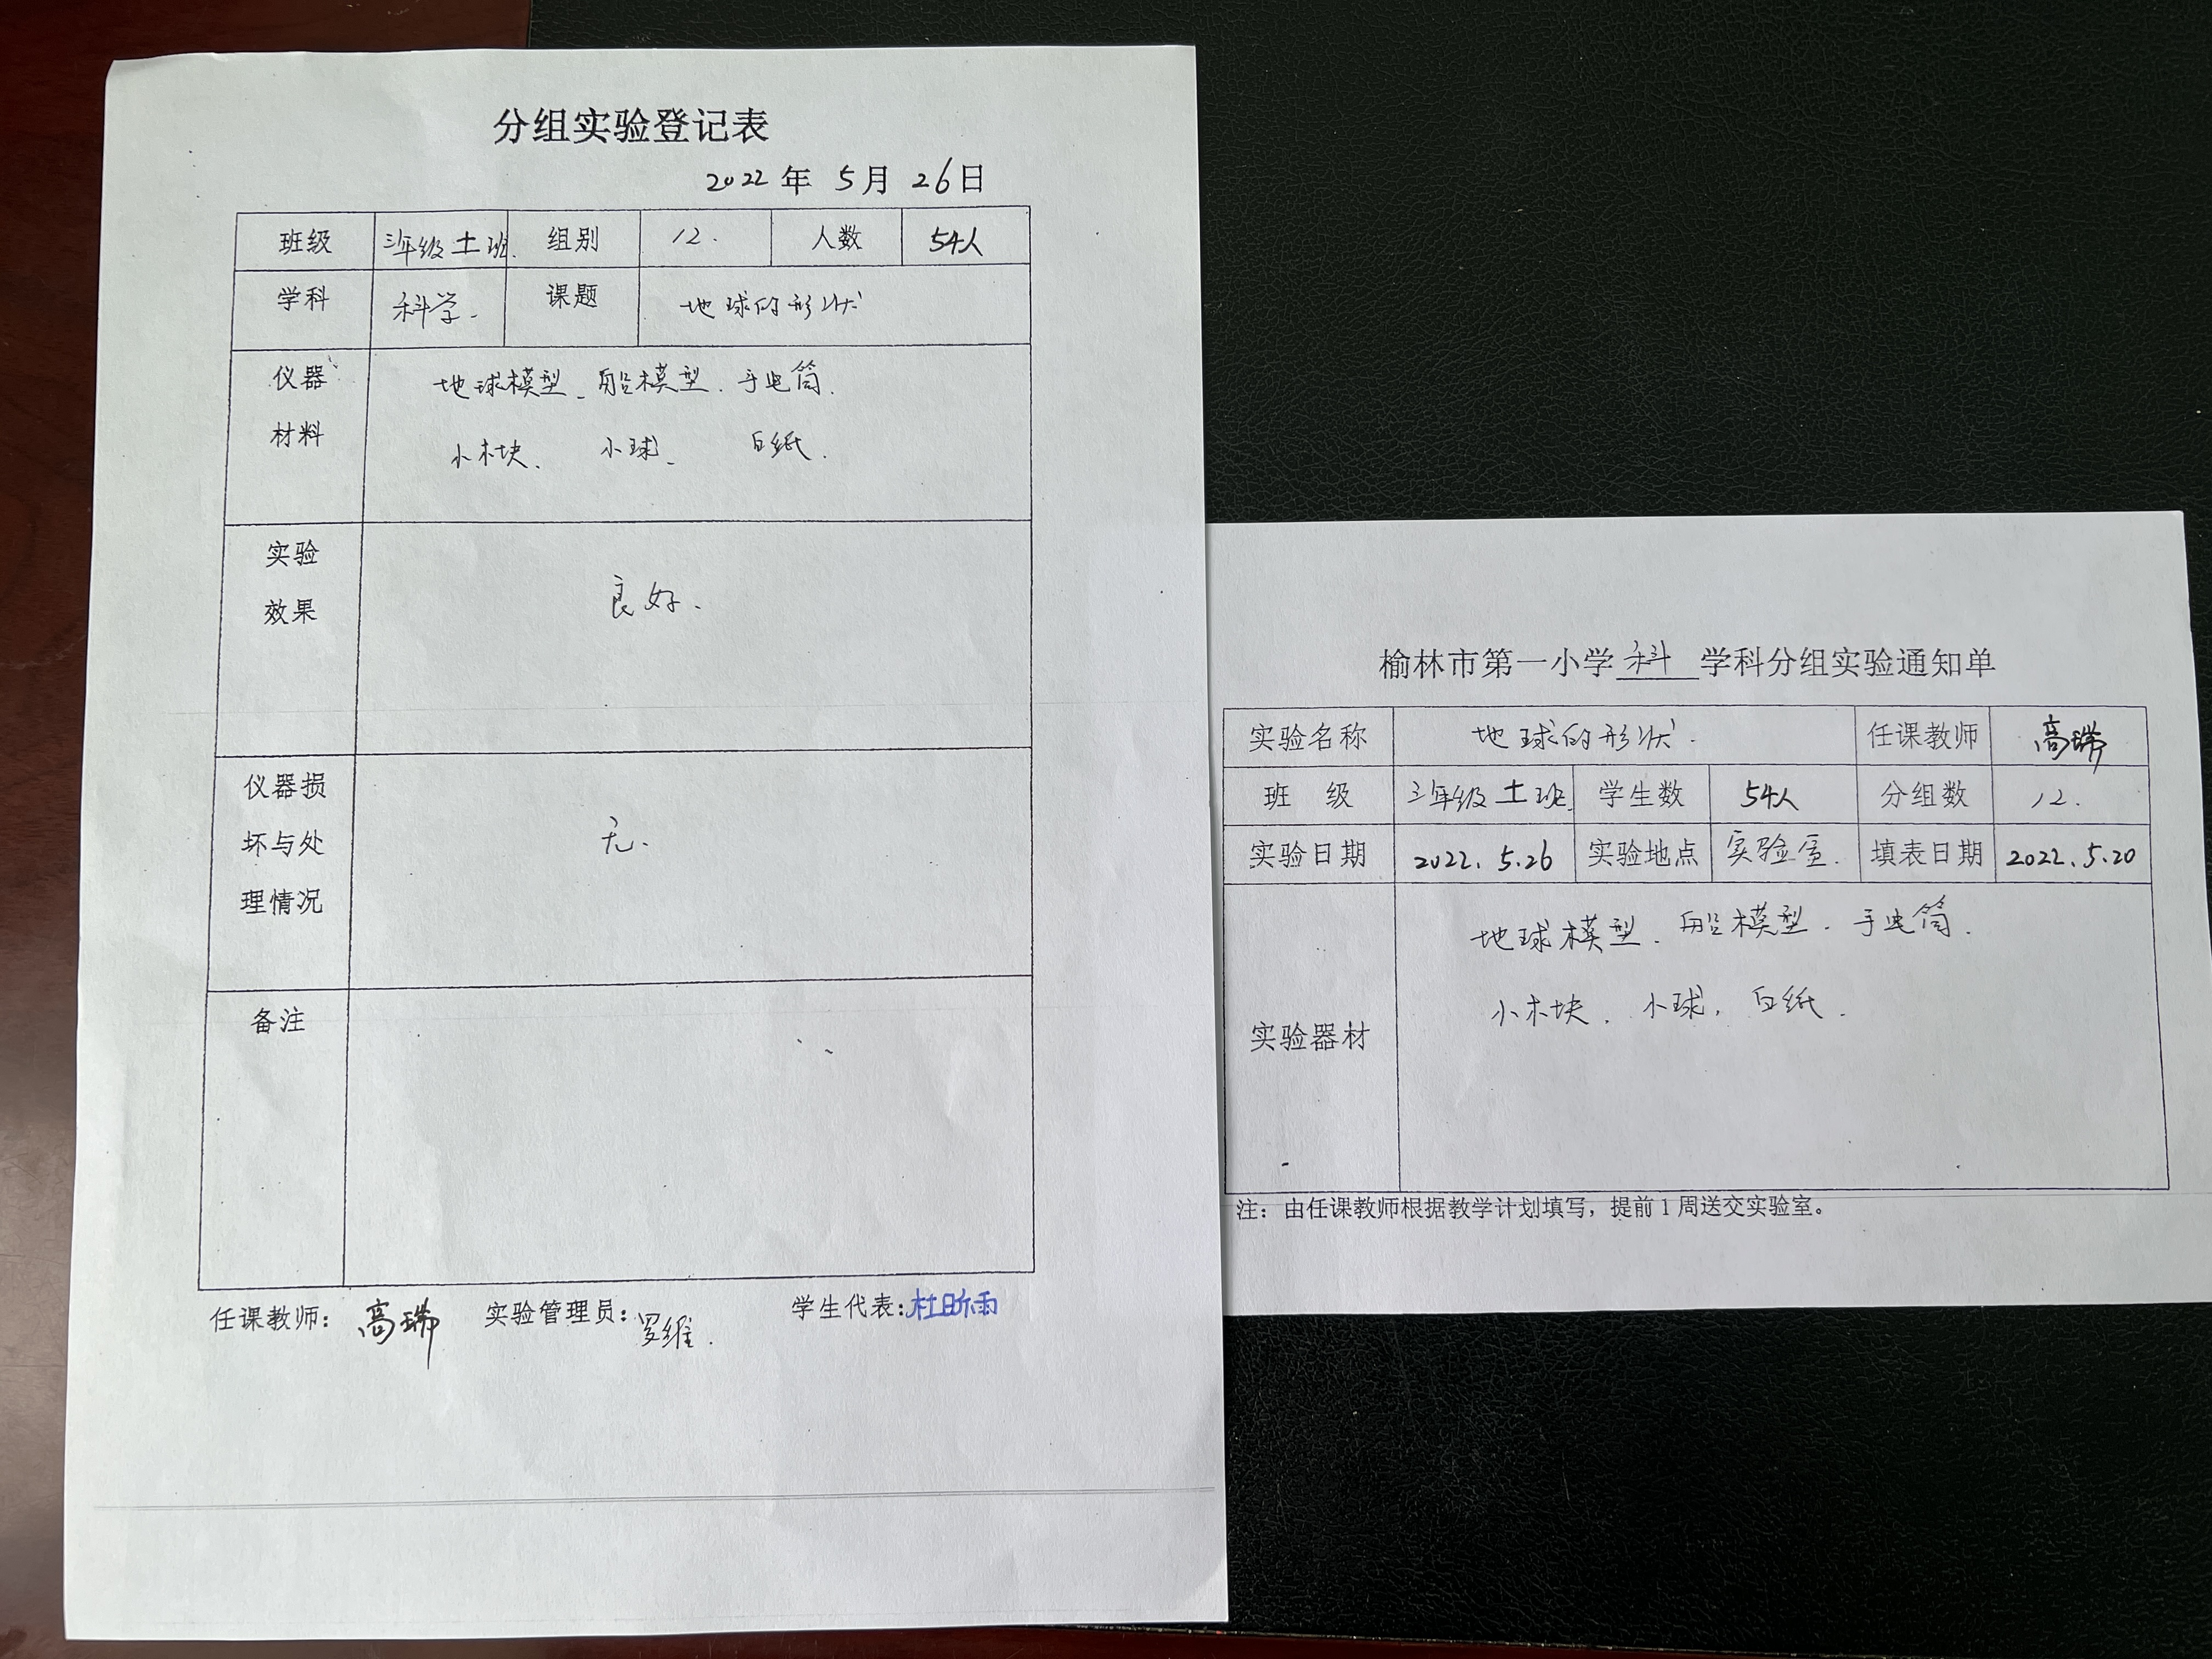 分组实验登记表
2022 年 5 月 26 日
班级 三年级十一班. 组别 12. 人数 54人
学科 科学. 课题 地球的形状
仪器材料 地球模型、船模型、手电筒.
小木块、 小球、 白纸.
实验效果 良好.
仪器损坏与处理情况 无.
备注
任课教师: 高瑞 实验管理员: 罗维. 学生代表: 杜昕雨
榆林市第一小学 科 学科分组实验通知单
实验名称 地球的形状. 任课教师 高瑞
班 级 三年级十一班. 学生数 54人 分组数 12.
实验日期 2022.5.26 实验地点 实验室. 填表日期 2022.5.20
实验器材 地球模型. 船模型. 手电筒.
小木块. 小球, 白纸.
注: 由任课教师根据教学计划填写, 提前1周送交实验室。